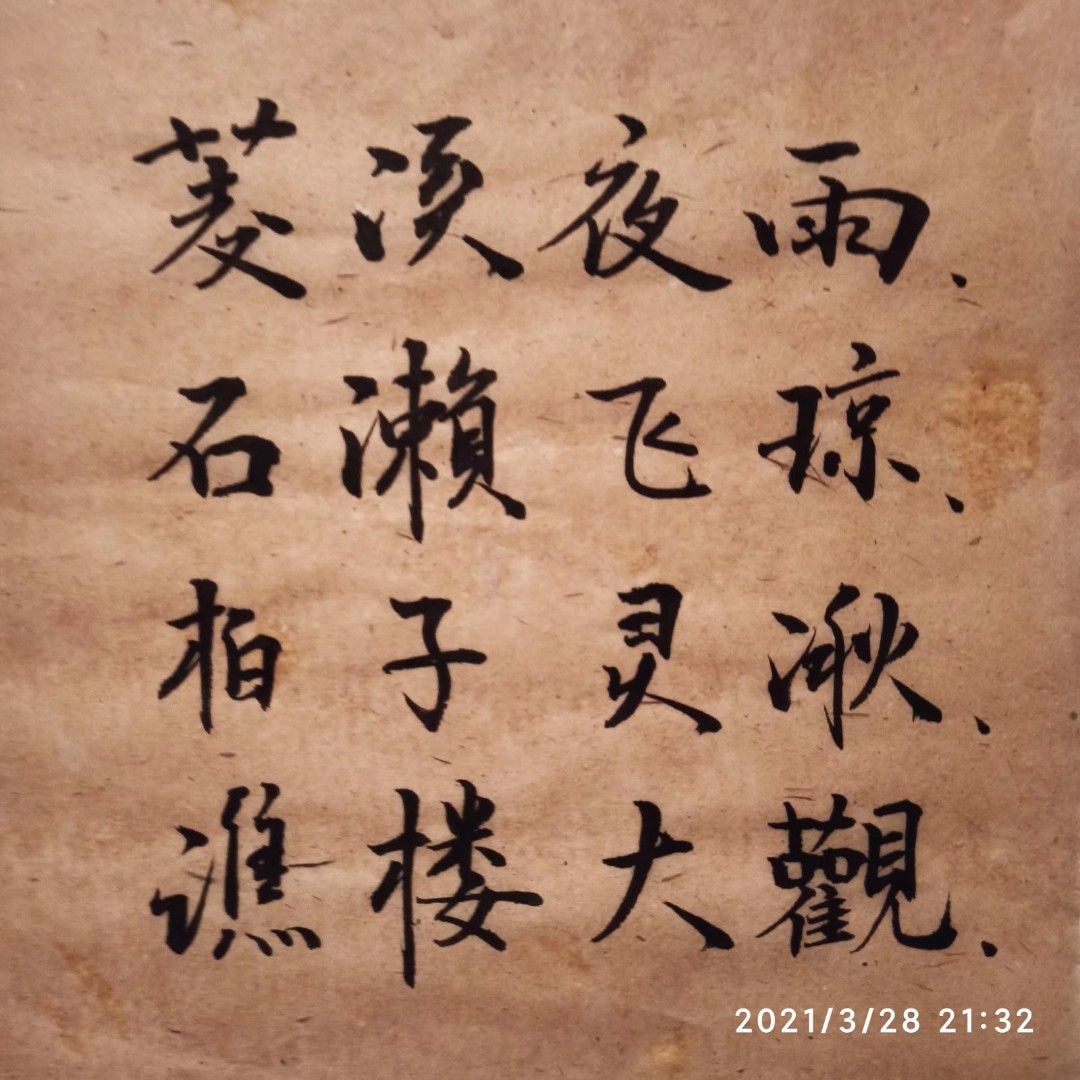 菱溪夜雨、
石濑飞琼、
柏子灵湫、
谯楼大觀、
2021/3/28 21:32